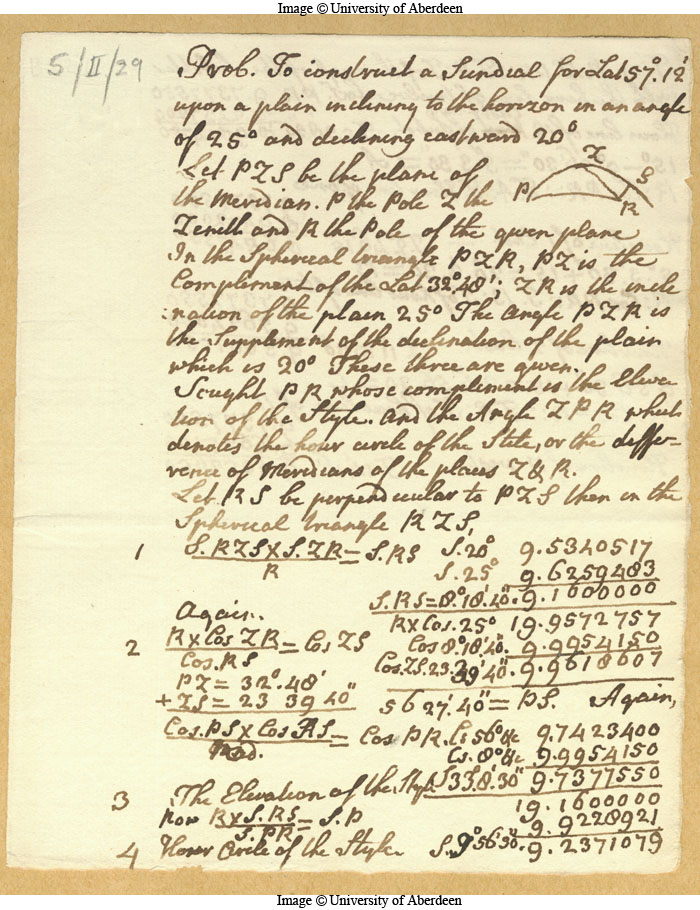 Image © University of Aberdeen
5/II/29
Prob. To construct a Sundial for Lat 57°.12'
upon a plain inclining to the horizon in an angle
of 25° and declining eastward 20°
Let PZS be the plane of
the Meridian. P the Pole Z the
Zenith and R the Pole of the given plane
P Z S R
In the Spherical triangle PZR, PZ is the
Complement of the Lat 32°.48'; ZR is the incli
nation of the plain 25° The angle PZR is
the Supplement of the declination of the plain
which is 20° These three are given.
Sought PR whose complement is the Eleva
tion of the Style. And the Angle ZPR which
denotes the hour circle of the Stile, or the diffe-
rence of Meridians of the places Z & R.
Let RS be perpendicular to PZS then in the
Spherical triangle RZS,
1 S.RZS X S.ZR / R = S.RS S.20° 9.5340517
S.25° 9.6259483
S.RS=8°.18'.40". 9.1600000
Again.
R X Cos. 25° 19.9572757
2 R X Cos ZR / Cos. RS = Cos ZS Cos 8°.18'.40". 9.9954150
Cos. ZS. 23.39'.40". 9.9618607
PZ = 32°.48'
+ ZS = 23 39 40"
56 27'.40" = PS. Again,
Cos. PS X Cos RS / Rad. = Cos PR. Cs 56° &c 9.7423400
Cs. 8° &c 9.9954150
3 The Elevation of the Style S.33°.8'.30" 9.7377550
19.1600000
Now R X S.RS / S.PR = S.P 9.9228921
4 Hour Circle of the Style. S.9°56'30". 9.2371079
Image © University of Aberdeen